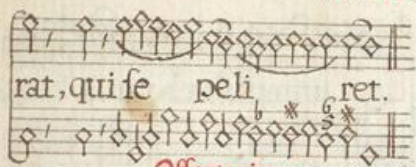 rat, qui se peli ret.
b 6
5